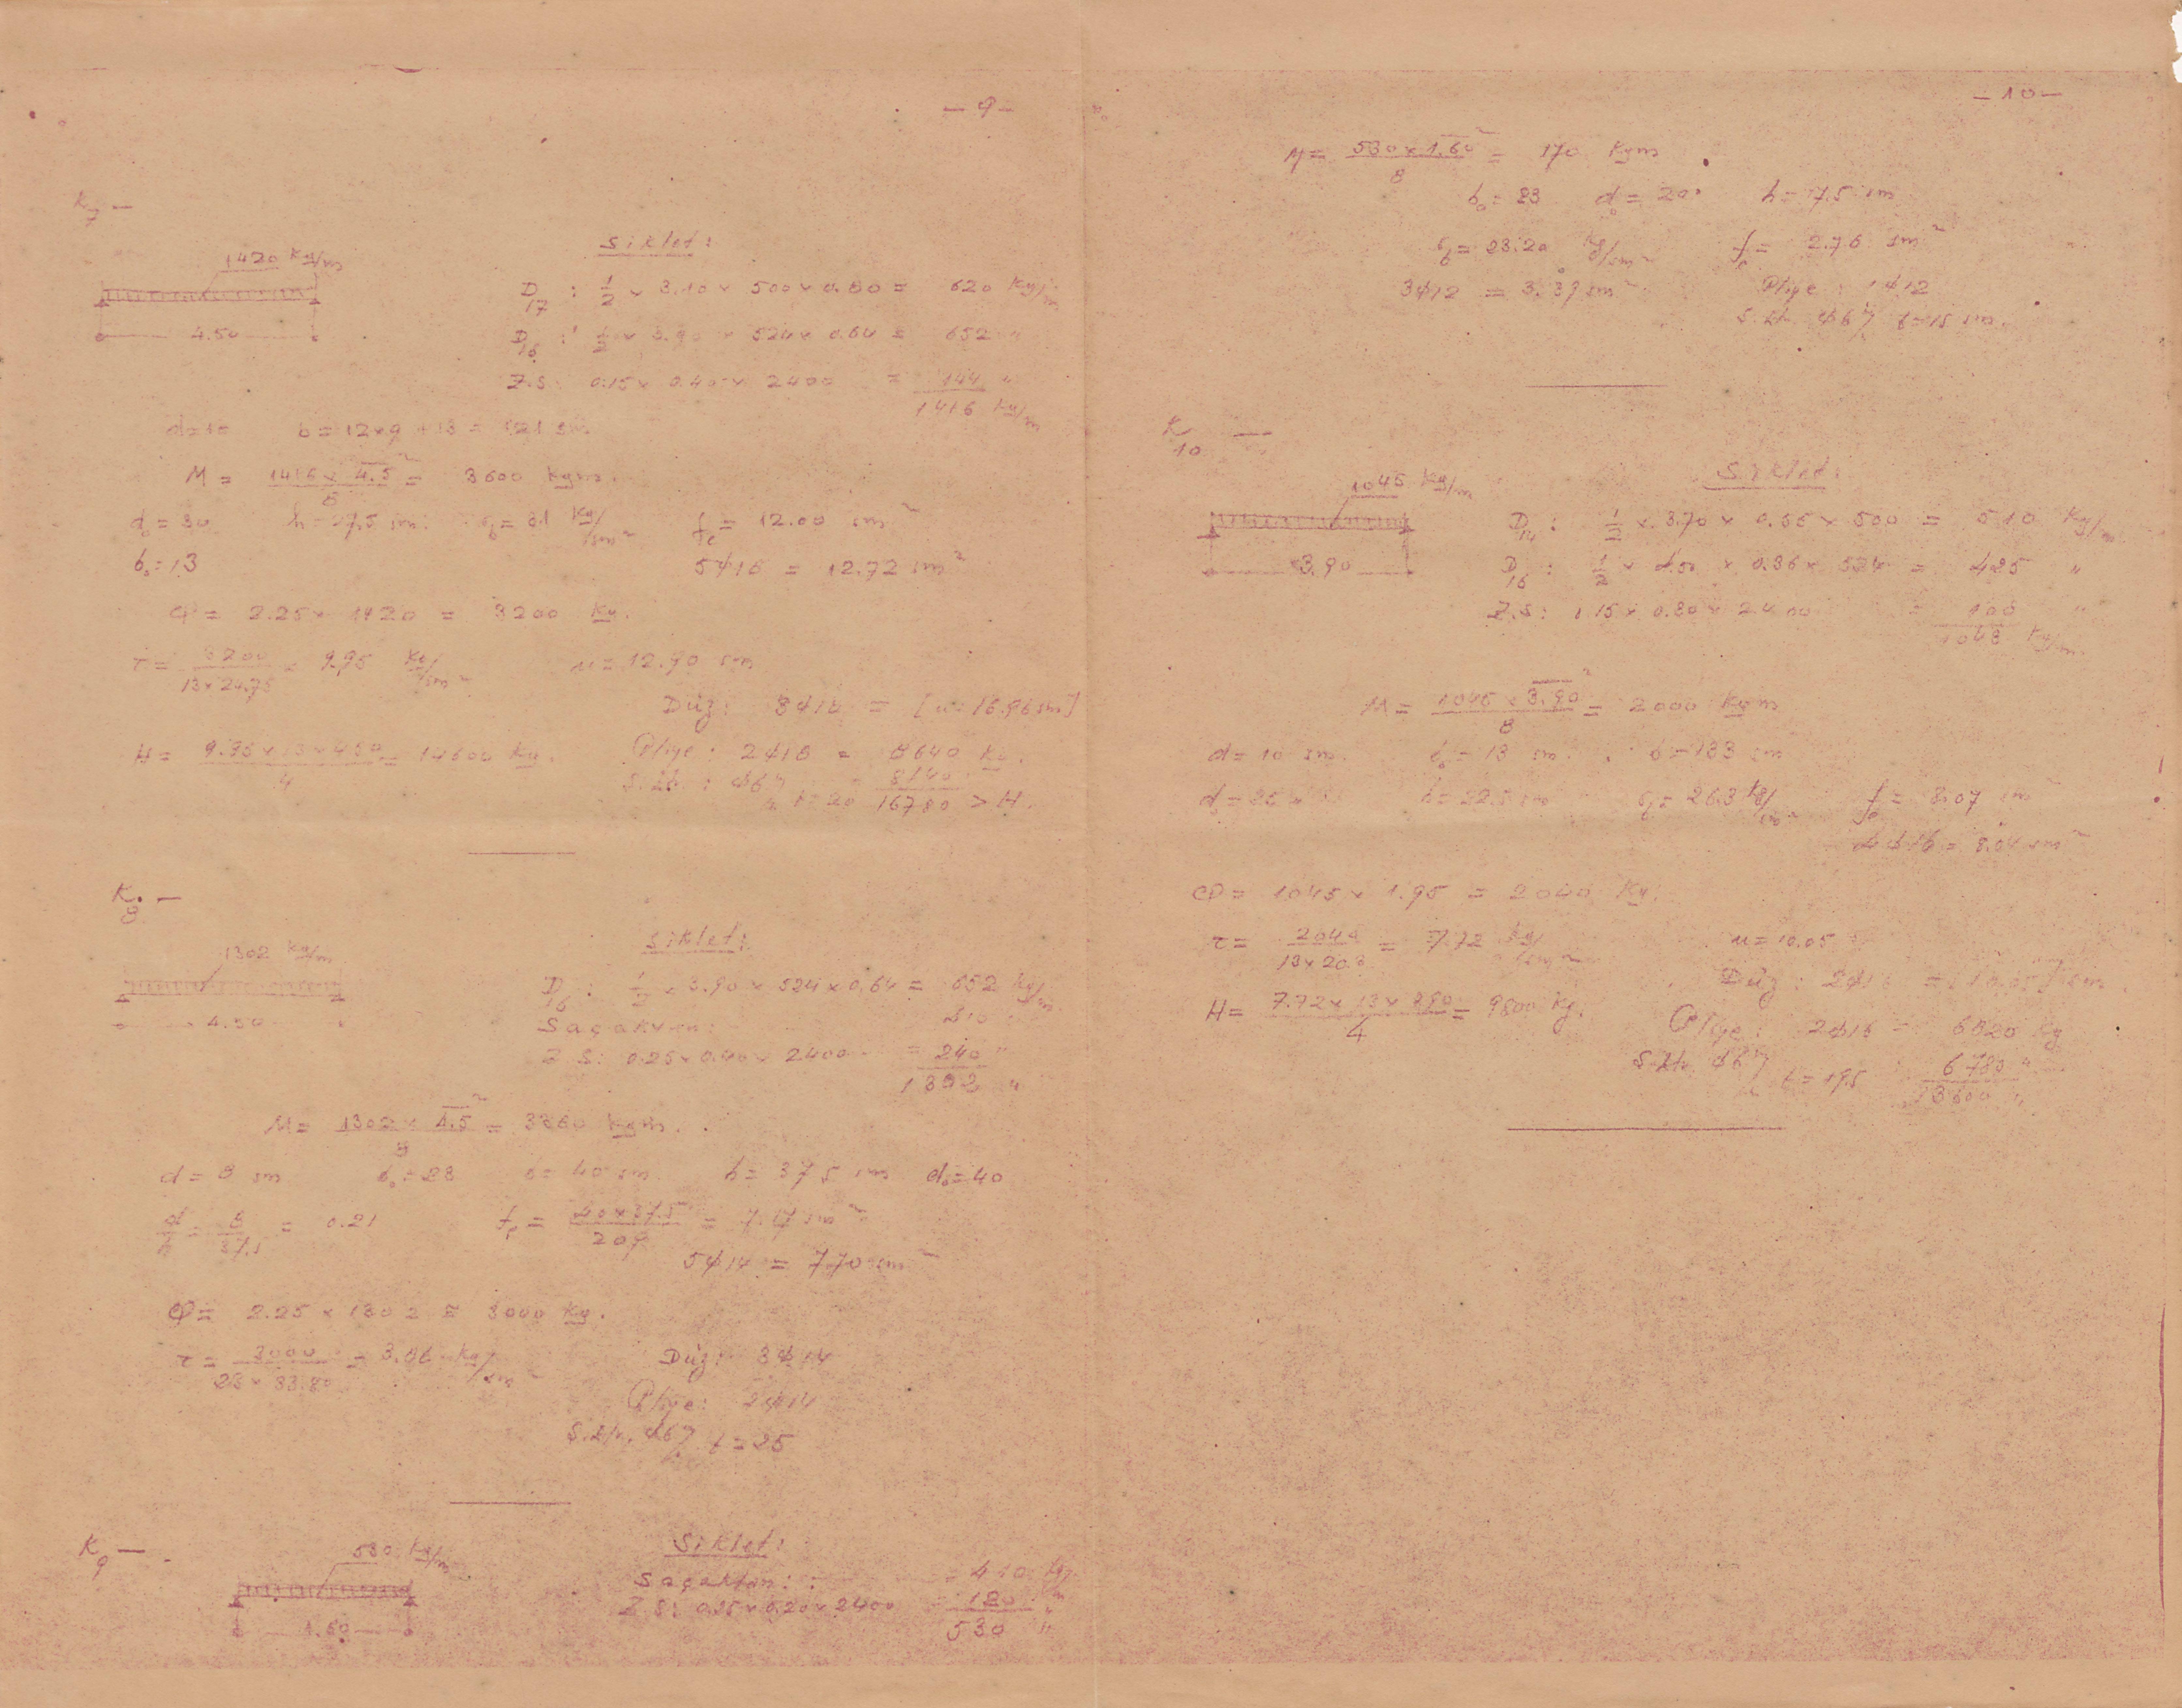 — 9 —
K7 —
Siklet:
1420 Kg/m
D17 : 1/2 × 3.10 × 500 × 0.80 = 620 Kg/m
4.50
D16 : 1/2 × 3.90 × 524 × 0.64 = 652 "
Z.S: 0.15 × 0.40 × 2400 = 144 "
1416 Kg/m
b = 12×9 + 13 = 121 sm.
M = 1416 × 4.5² / 8 = 3600 kgm.
d₀ = 30 h = 27.5 sm. σb = 31 Kg/sm² fe = 12.00 sm²
b₀ = 13 5φ18 = 12.72 sm²
Q = 2.25 × 1420 = 3200 Kg.
τ = 3200 / 13 × 24.75 = 9.95 Kg/sm² u = 12.90 sm
Düz: 3φ18 = [u = 16.96 sm]
H = 9.95 × 13 × 450 / 4 = 14600 Kg. Pliye: 2φ18 = 8640 Kg.
S. Etr. : φ6 8140
t = 20 16780 > H.
K8 —
Siklet:
1302 Kg/m
D16 : 1/2 × 3.90 × 524 × 0.64 = 652 Kg/m
4.50
Saçaktan: 410
Z.S: 0.25 × 0.40 × 2400 = 240 "
1302 "
M = 1302 × 4.5² / 8 = 3360 kgm.
d = 8 sm b₀ = 23 b = 40 sm. h = 37.5 sm d₀ = 40
d/h = 8/37.5 = 0.21 fe = 40×37.5 / 209 = 7.17 sm²
5φ14 = 7.70 sm²
Q = 2.25 × 1302 = 3000 Kg.
τ = 3000 / 23 × 33.80 = 3.86 Kg/sm² Düz: 3φ14
Pliye: 2φ14
S. Etr. φ6 t = 25
K9 —
Siklet:
530 Kg/m
Saçaktan: = 410 Kg/m
Z.S: 0.25 × 0.20 × 2400 = 120 "
1.60
530 "
— 10 —
M = 530 × 1.60² / 8 = 170 Kgm
b₀ = 23 d₀ = 20 h = 17.5 sm
σb = 23.20 kg/sm² fe = 2.76 sm²
3φ12 = 3.39 sm² Pliye : 1φ12
S. Etr. φ6 t = 15 sm.
K10 —
Siklet:
1045 Kg/m
D14 : 1/2 × 3.70 × 0.55 × 500 = 510 Kg/m
3.90
D16 : 1/2 × 4.50 × 0.36 × 524 = 425 "
Z.S: 0.15 × 0.30 × 2400 = 108 "
1043 Kg/m.
M = 1045 × 3.90² / 8 = 2000 Kgm
d = 10 sm. b₀ = 13 sm. b = 133 sm
d₀ = 25 " h = 22.5 sm σb = 26.3 kg/sm² fe = 8.07 sm²
4φ16 = 8.04 sm²
Q = 1045 × 1.95 = 2040 Kg.
τ = 2040 / 13 × 20.3 = 7.72 kg/sm² u = 10.05
Düz : 2φ16 = [10.05] sm.
H = 7.72 × 13 × 390 / 4 = 9800 Kg. Pliye : 2φ16 = 6820 Kg
S. Etr. φ6 t = 19.5 6780 "
13600 "